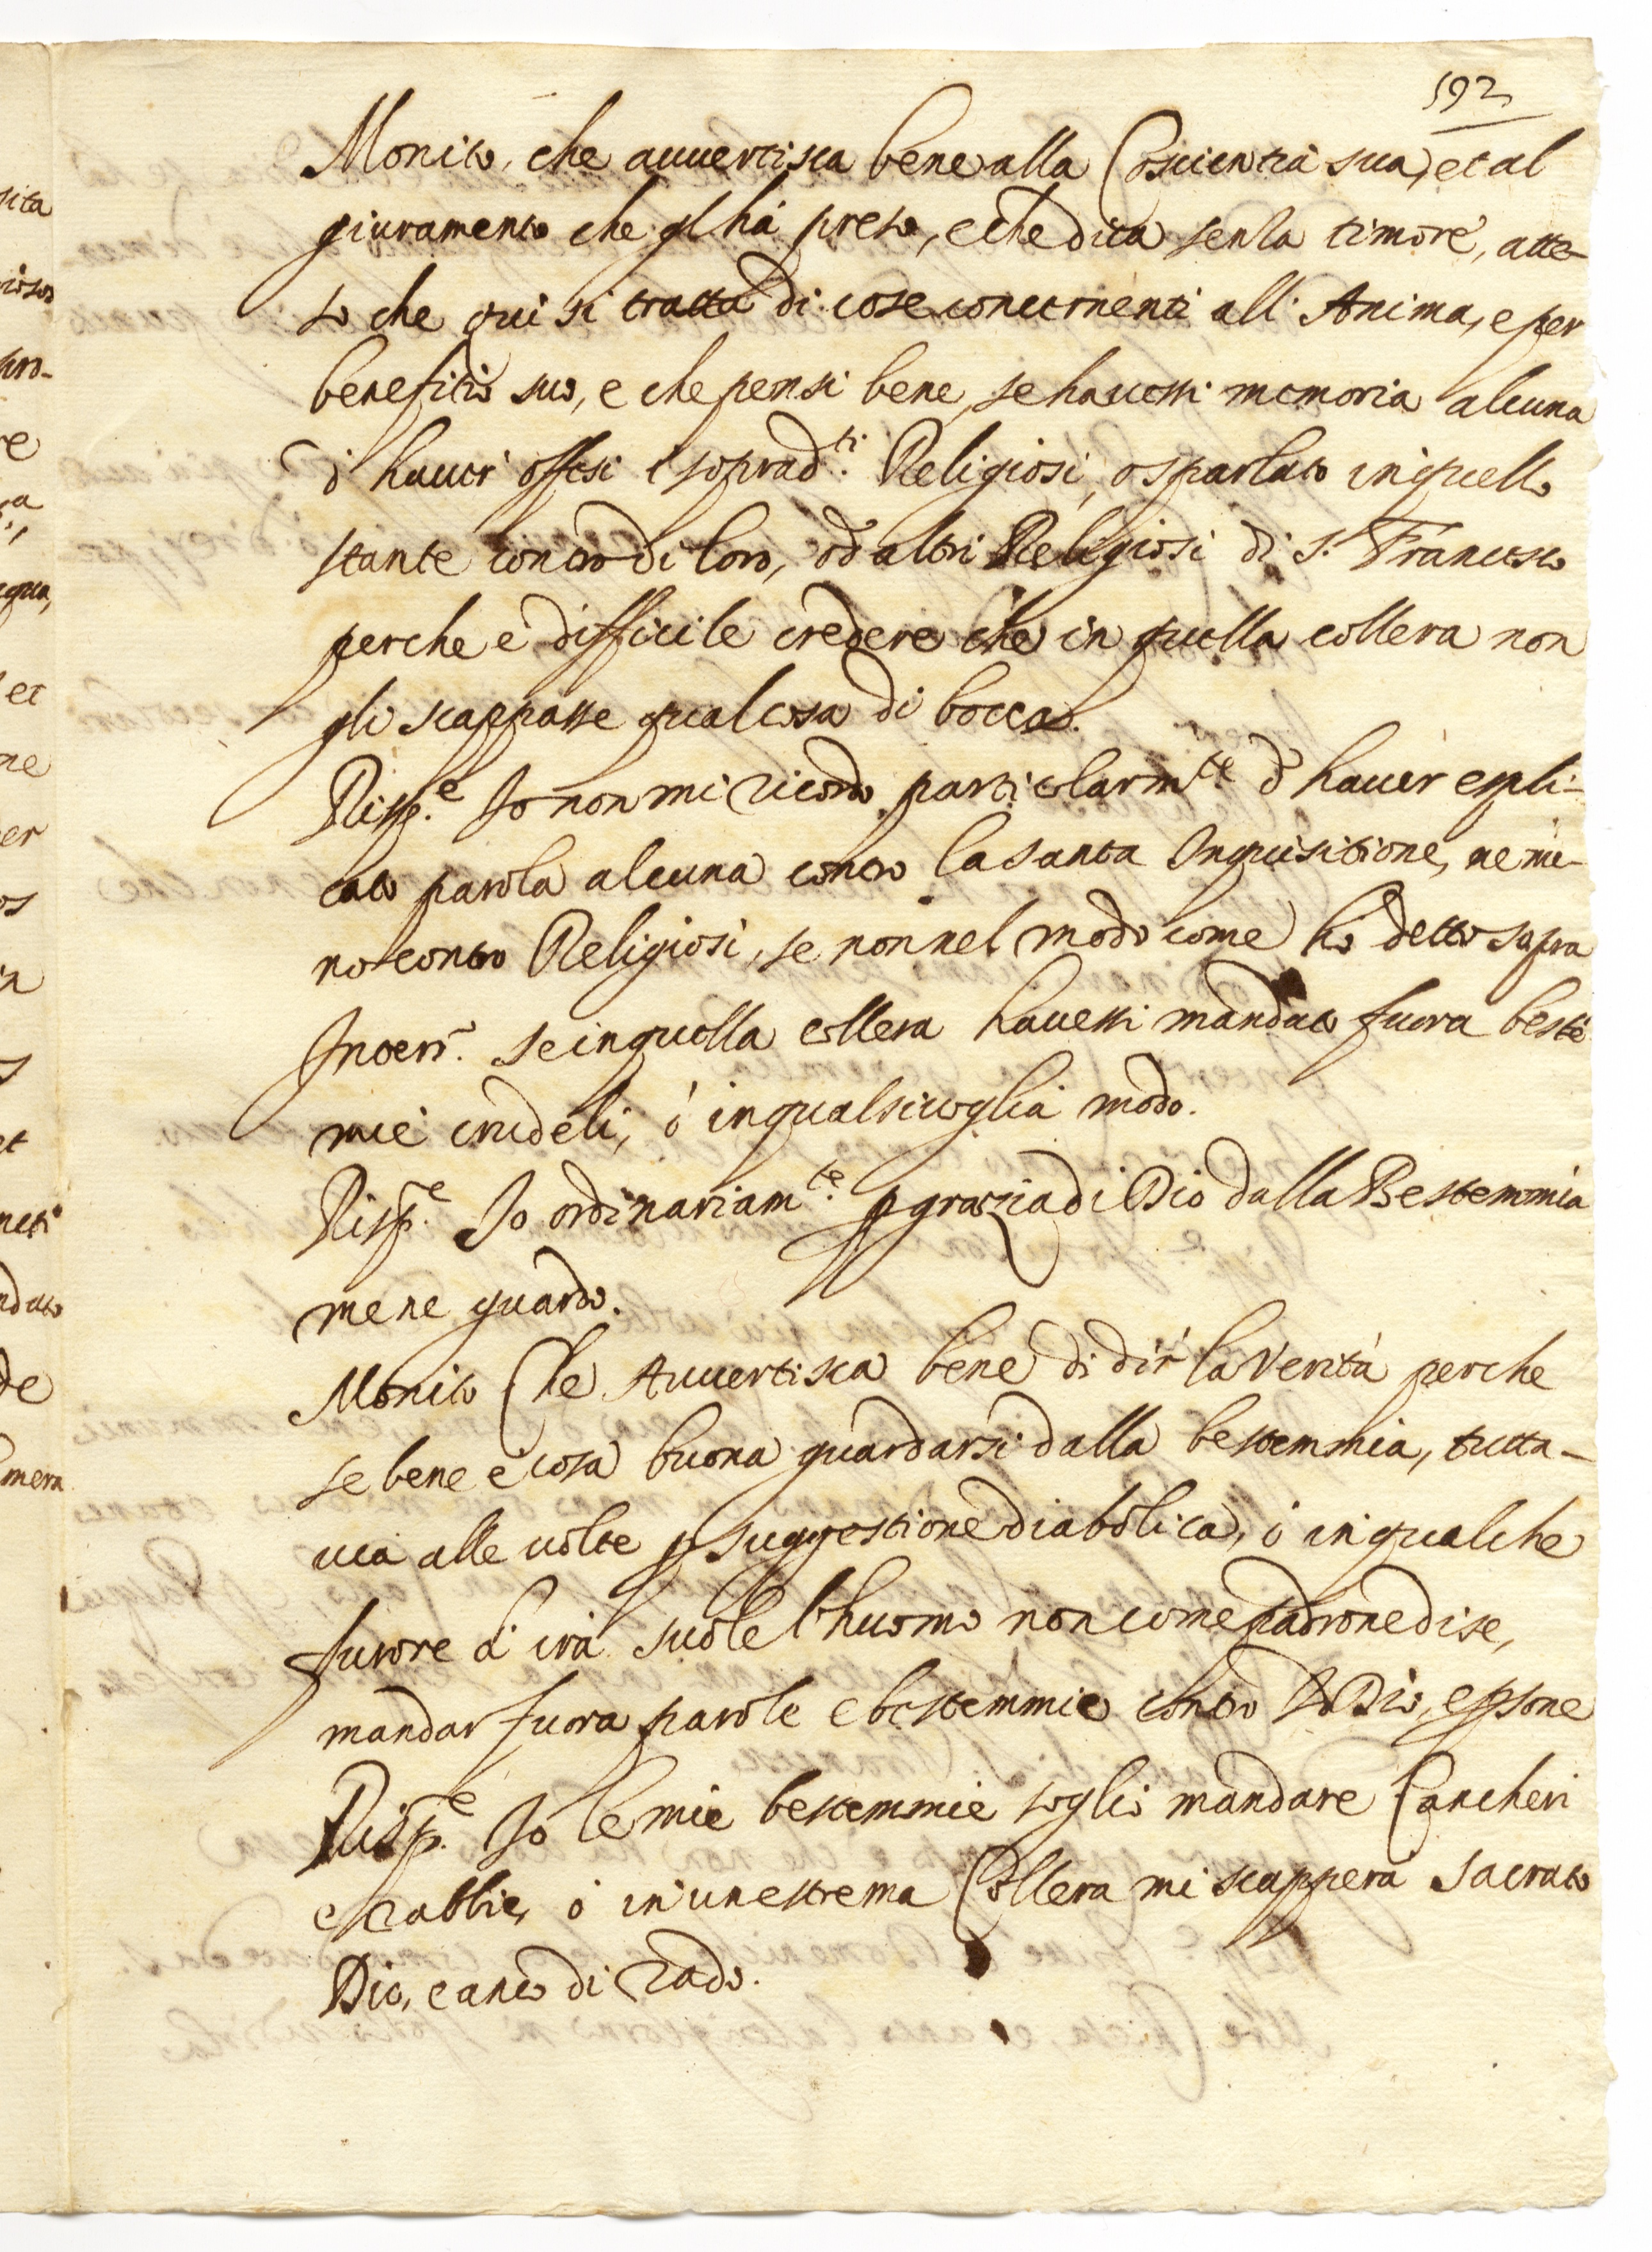 592
Monito, che auuertisca bene alla Coscientia sua, et al
giuramento che gl'há preso, e che dica senza timore, atte-
so che qui si tratta di cose concernenti all' Anima, e per
benefitio suo, e che pensi bene, se hauessi memoria alcuna
d'hauer offesi i soprad.ti Religiosi, o sparlato in quello
stante contro di loro, od altri Religiosi di S. Francesco
perche e difficile credere che in quella collera non
gli scappasse qualcosa di bocca.
Risp.e Io non mi ricordo particolarm.te d'hauer espli-
cato parola alcuna contro la Santa Inquisitione, ne me-
no contro Religiosi, se non nel modo come hó detto sopra
Interr. se in quella collera hauessi mandato fuora beste
mie crudeli, ó in qualsiuoglia modo.
Risp.e Io ordinariam.te p grazia di Dio dalla Bestemmia
me ne guardo.
Monito Che Auuertisca bene di dir la Verità perche
se bene é cosa buona guardarsi dalla bestemmia, tutta-
uia alle uolte p suggestione diabolica, ó in qualche
furore d' ira suole l'huomo non come padrone di se,
mandar fuora parole e bestemmie contro Dio,
Risp.e Io le mie bestemmie soglio mandare Cancheri
e Rabbie, ó in un estrema Collera mi scapperá Sacrato
Dio, e anco di Rado.
sita
pro-
re
ra
et
ne
er
os
s
et
ndato
de
mera